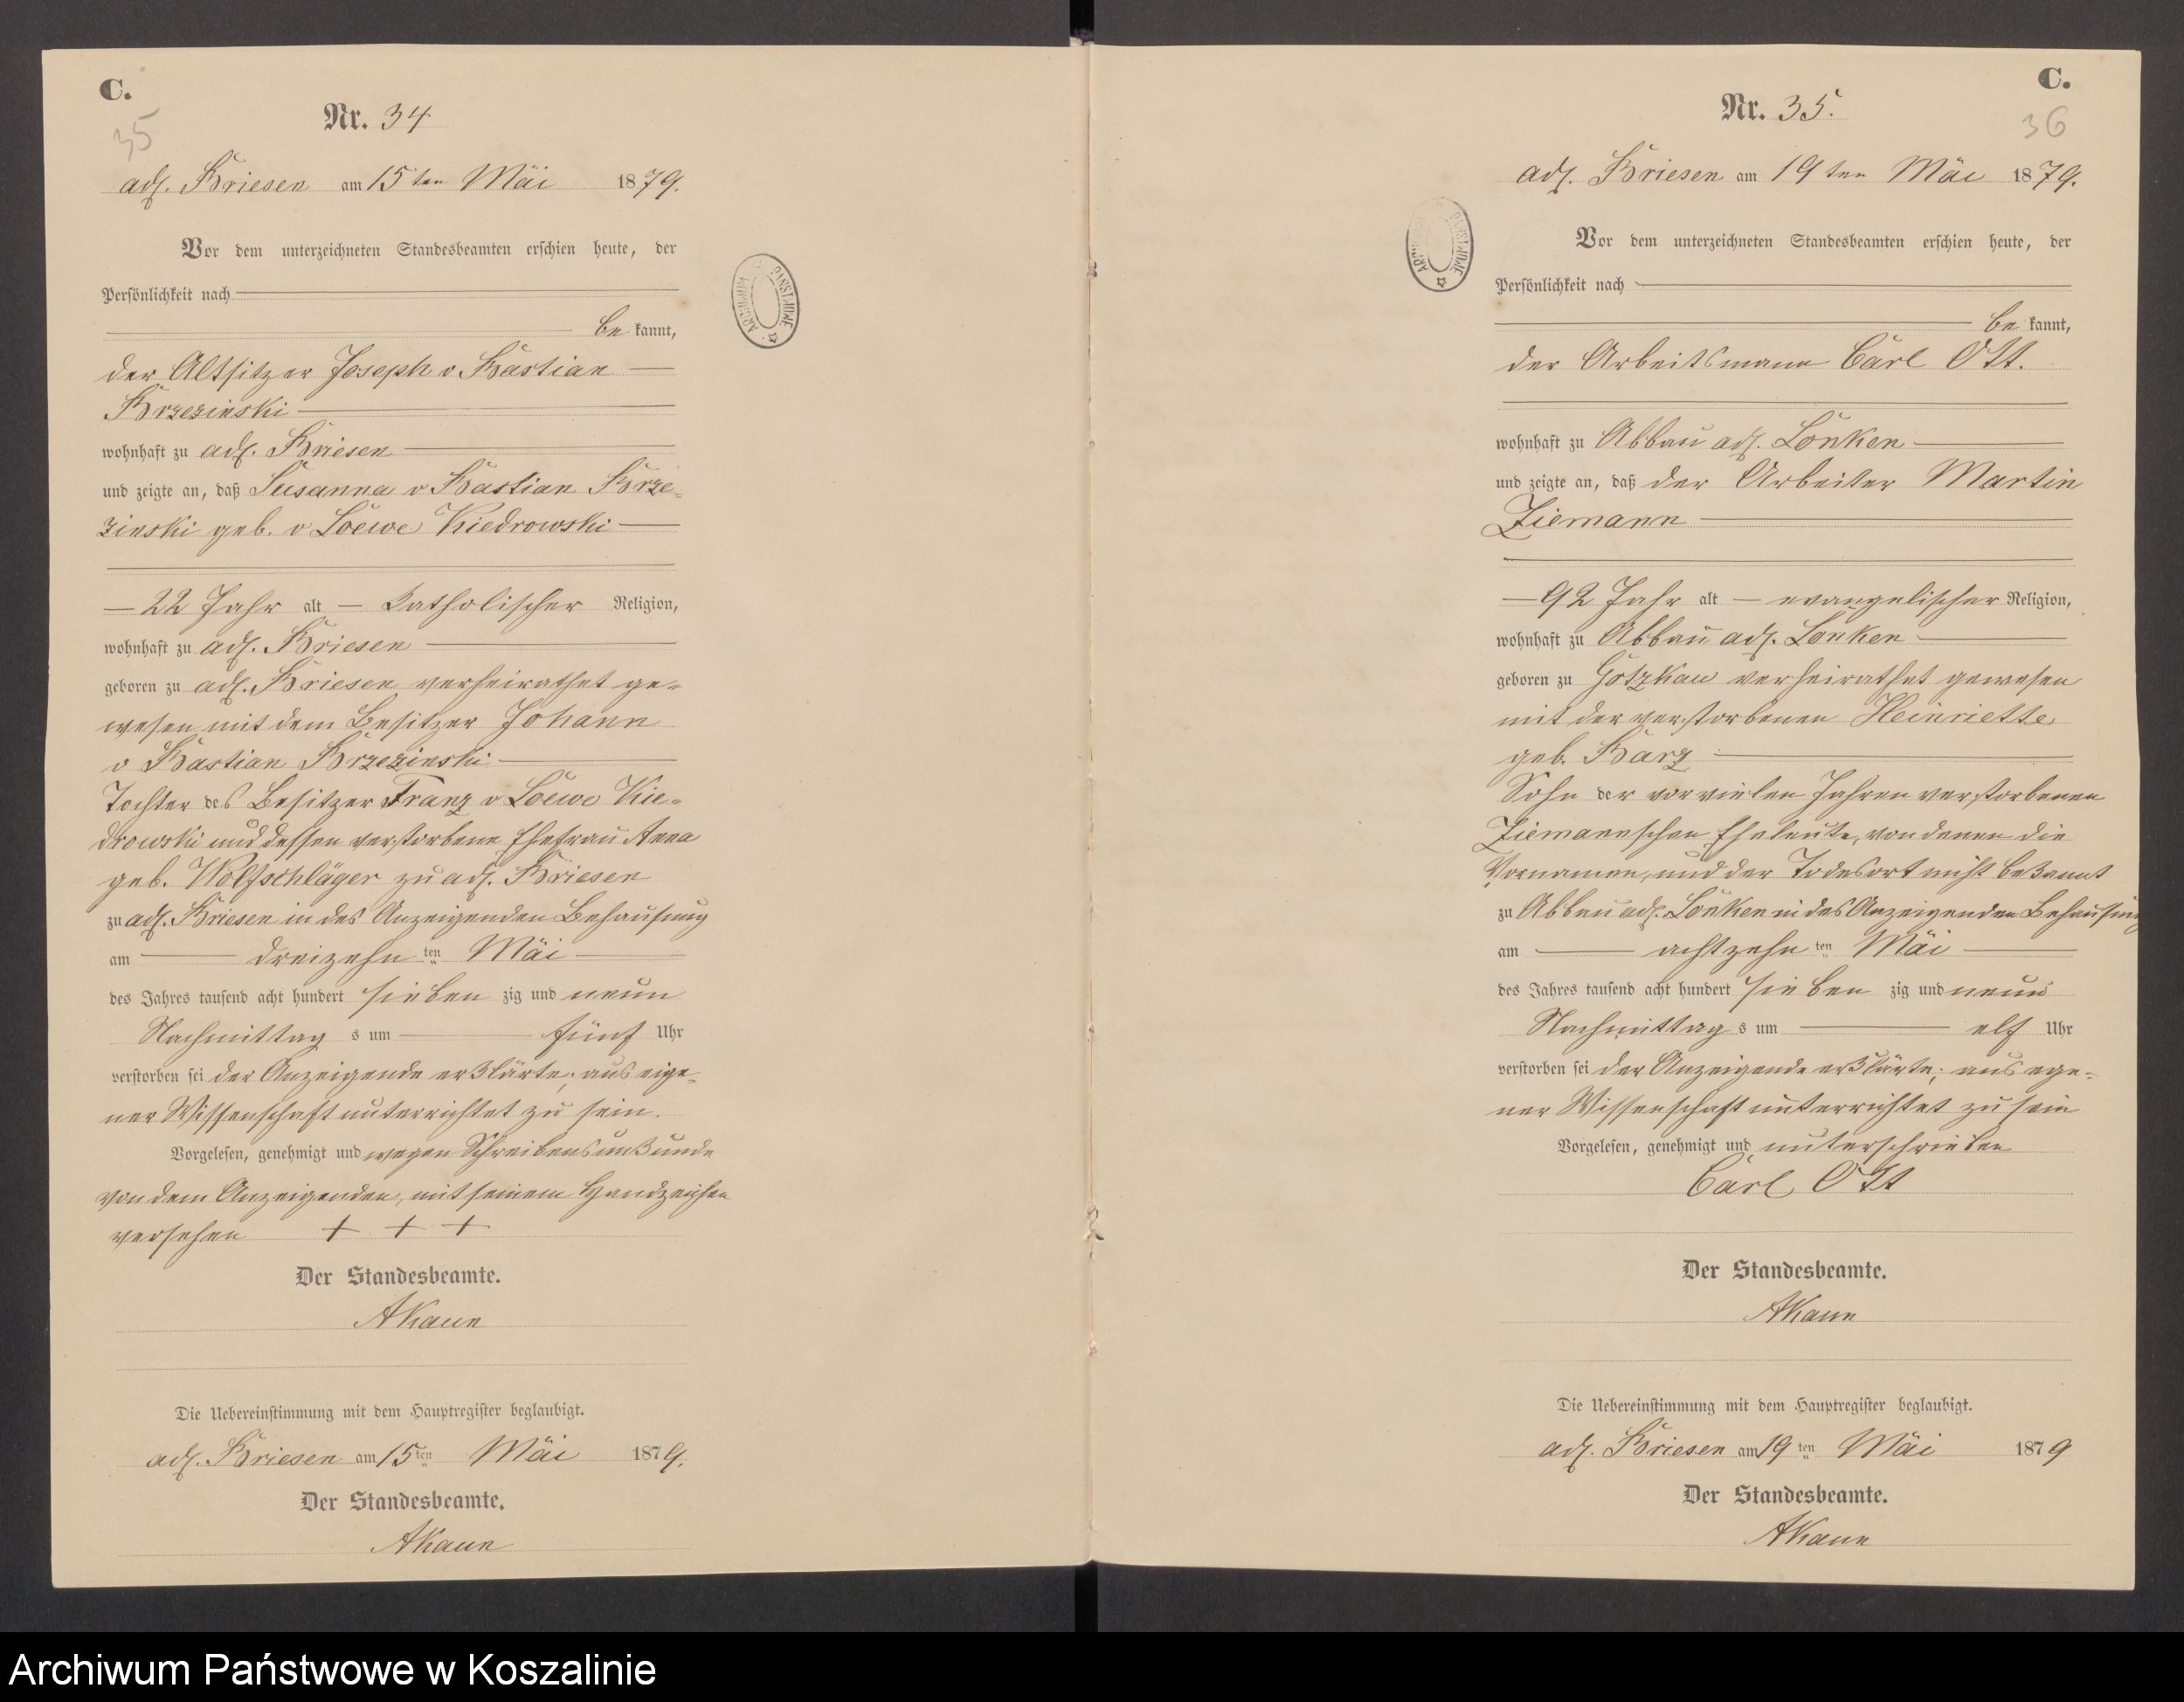 C.
35
Nr. 34
adl. Briesen am 15ten Mai 1879.
Vor dem unterzeichneten Standesbeamten erschien heute, der
Persönlichkeit nach
be kannt,
der Altsitzer Joseph v Bastian
Brzezinski
wohnhaft zu adl. Briesen
und zeigte an, daß Susanna v Bastian Brze-
zinski geb. v Loewe Kiedrowski
22 Jahr alt — Katholischer Religion,
wohnhaft zu adl. Briesen
geboren zu adl. Briesen verheirathet ge-
wesen mit dem Besitzer Johann
v Bastian Brzezinski
Tochter des Besitzer Franz v Loewe Kie-
drowski und dessen verstorbene Ehefrau Anna
geb. Wolfschläger zu adl. Briesen
zu adl. Briesen in des Anzeigenden Behausung
am dreizehn ten Mai
des Jahres tausend acht hundert sieben zig und neun
Nachmittag s um fünf Uhr
verstorben sei der Anzeigende erklärte; aus eige-
ner Wissenschaft unterrichtet zu sein.
Vorgelesen, genehmigt und wegen Schreibensunkunde
von dem Anzeigenden, mit seinem Handzeichen
versehen + + +
Der Standesbeamte.
AKaun
Die Uebereinstimmung mit dem Hauptregister beglaubigt.
adl. Briesen am 15ten Mai 1879.
Der Standesbeamte.
AKaun
C.
36
Nr. 35.
adl. Briesen am 19ten Mai 1879.
Vor dem unterzeichneten Standesbeamten erschien heute, der
Persönlichkeit nach
be kannt,
der Arbeitsmann Carl Ott.
wohnhaft zu Abbau adl. Lonken
und zeigte an, daß der Arbeiter Martin
Ziemann
92 Jahr alt — evangelischer Religion,
wohnhaft zu Abbau adl. Lonken
geboren zu Gotzkau verheirathet gewesen
mit der verstorbenen Heinriette
geb. Barz
Sohn der vor vielen Jahren verstorbenen
Ziemannschen Eheleute, von denen die
Vornamen, und der Todesort nicht bekannt
zu Abbau adl. Lonken in des Anzeigenden Behausung
am achtzehn ten Mai
des Jahres tausend acht hundert sieben zig und neun
Nachmittag s um elf Uhr
verstorben sei der Anzeigende erklärte; aus ege-
ner Wissenschaft unterrichtet zu sein
Vorgelesen, genehmigt und unterschrieben
Carl Ott
Der Standesbeamte.
AKaun
Die Uebereinstimmung mit dem Hauptregister beglaubigt.
adl. Briesen am 19ten Mai 1879
Der Standesbeamte.
AKaun
Archiwum Państwowe w Koszalinie